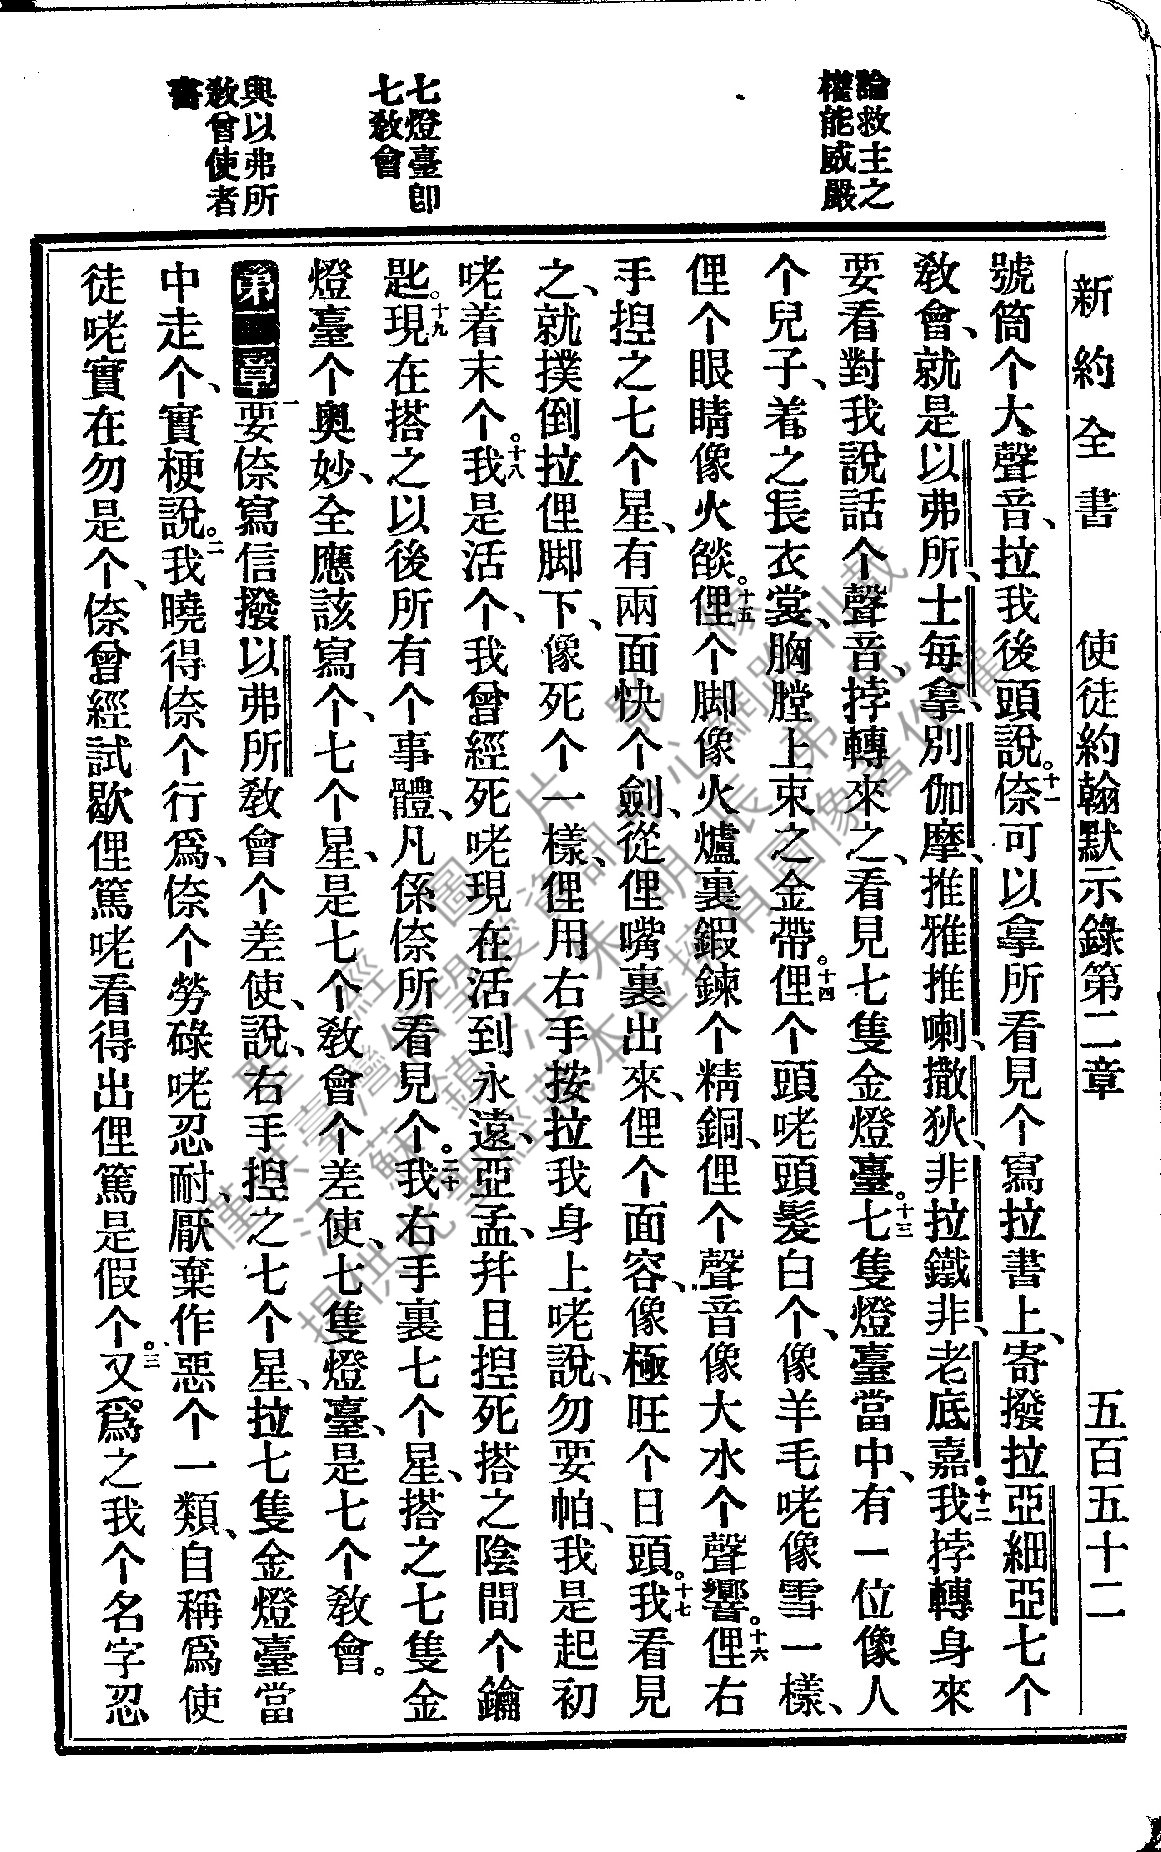 新約全書　使徒約翰默示錄第二章　五百五十二
論救主之
權能威嚴
七燈臺卽
七敎會
與以弗所
敎會使者
書
號筒个大聲音、拉我後頭說。十一㑚可以拿所看見个寫拉書上、寄撥拉亞細亞七个
敎會、就是以弗所、士每拿、別伽摩、推雅推喇、撒狄、非拉鐵非、老底嘉。十二我挬轉身來
要看對我說話个聲音、挬轉來之、看見七隻金燈臺。十三七隻燈臺當中、有一位像人
个兒子、着之長衣裳、胸膛上束之金帶。十四俚个頭咾頭髮白个、像羊毛咾像雪一樣、
俚个眼睛像火燄。十五俚个脚像火爐裏鍜鍊个精銅、俚个聲音像大水个聲響。十六俚右
手揑之七个星、有兩面快个劍、從俚嘴裏出來、俚个面容、像極旺个日頭。十七我看見
之、就撲倒拉俚脚下、像死个一樣、俚用右手按拉我身上咾說、勿要怕、我是起初
咾着末个。十八我是活个、我曾經死咾現在活到永遠、亞孟、幷且揑死搭之陰間个鑰
匙。十九現在搭之以後所有个事體、凡係㑚所看見个。二十我右手裏七个星、搭之七隻金
燈臺个奧妙、全應該寫个、七个星、是七个敎會个差使、七隻燈臺、是七个敎會。
第二章一要㑚寫信撥以弗所敎會个差使、說、右手揑之七个星、拉七隻金燈臺當
中走个、實梗說。二我曉得㑚个行爲、㑚个勞碌咾忍耐、厭棄作惡个一類、自稱爲使
徒咾實在勿是个、㑚曾經試歇俚篤咾看得出俚篤是假个。三又爲之我个名字忍